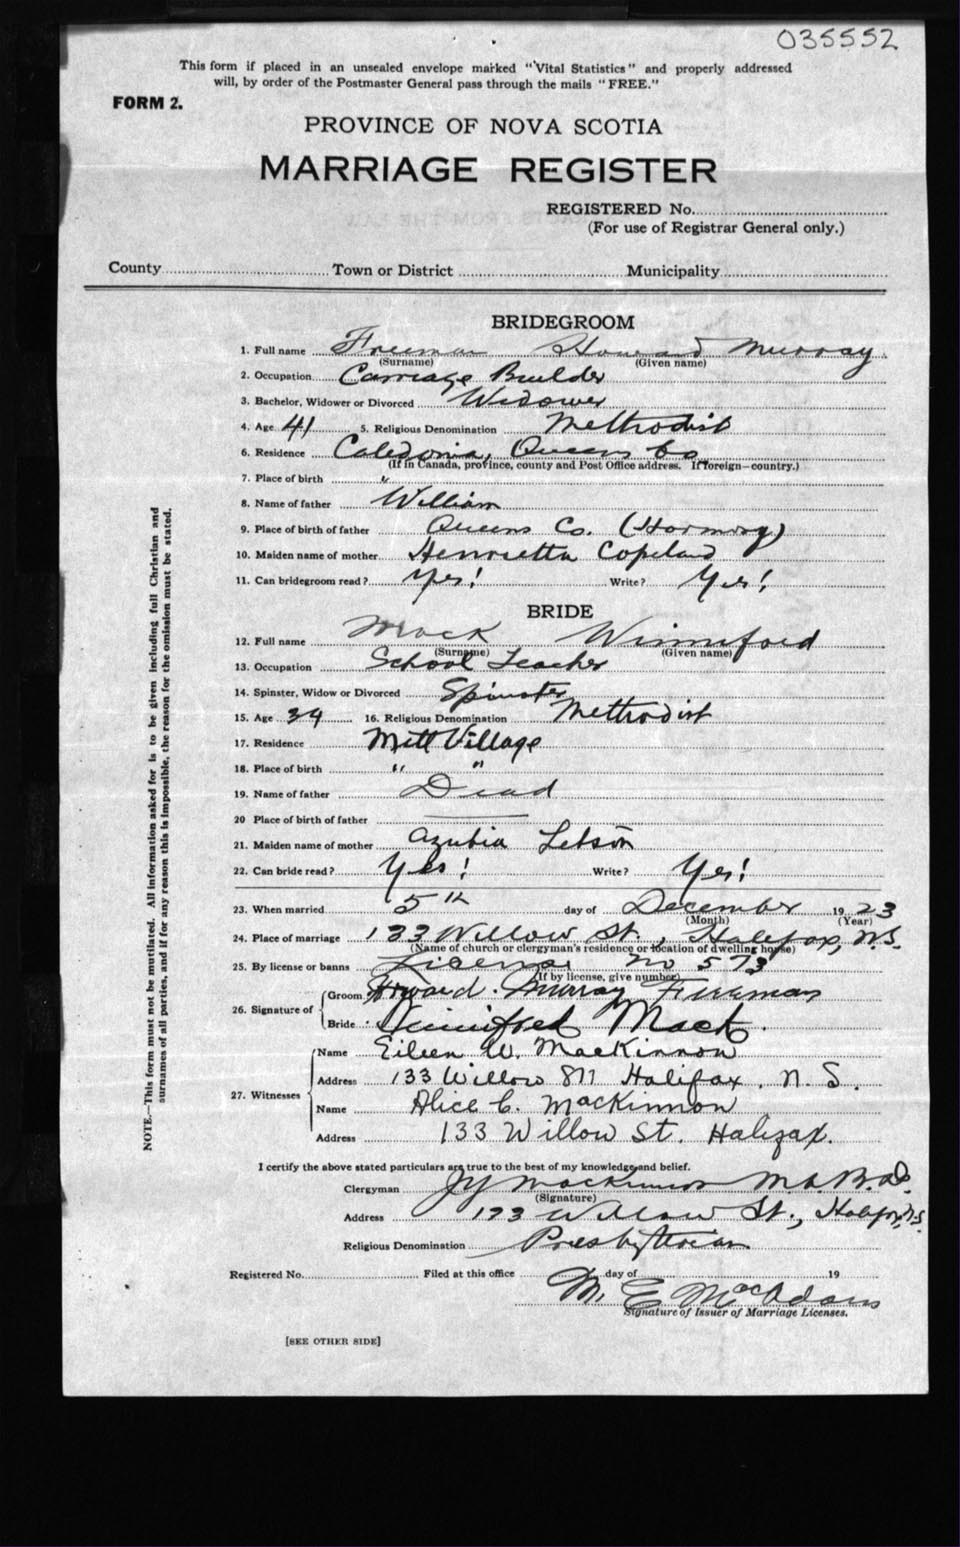 035552
This form if placed in an unsealed envelope marked "Vital Statistics" and properly addressed
will, by order of the Postmaster General pass through the mails "FREE."
FORM 2.
PROVINCE OF NOVA SCOTIA
MARRIAGE REGISTER
REGISTERED No.
(For use of Registrar General only.)
County Town or District Municipality
BRIDEGROOM
1. Full name Freeman Howard Murray
(Surname) (Given name)
2. Occupation Carriage Builder
3. Bachelor, Widower or Divorced Widower
4. Age 41 5. Religious Denomination Methodist
6. Residence Caledonia, Queens Co
(If in Canada, province, county and Post Office address. If foreign—country.)
7. Place of birth "
8. Name of father William
9. Place of birth of father Queens Co. (Harmony)
10. Maiden name of mother Henrietta Copeland
11. Can bridegroom read? Yes! Write? Yes!
BRIDE
12. Full name Mack Winniford
(Surname) (Given name)
13. Occupation School Teacher
14. Spinster, Widow or Divorced Spinster
15. Age 34 16. Religious Denomination Methodist
17. Residence Mill Village
18. Place of birth " "
19. Name of father Dead
20 Place of birth of father
21. Maiden name of mother Azubia Letson
22. Can bride read? Yes! Write? Yes!
23. When married 5th day of December 1923
(Month) (Year)
24. Place of marriage 133 Willow St., Halifax, N.S.
(Name of church or clergyman's residence or location of dwelling house)
25. By license or banns License No 573
(If by license, give number)
26. Signature of
Groom Howard Murray Freeman
Bride Winnifred Mack.
27. Witnesses
Name Eileen W. MacKinnon
Address 133 Willow St Halifax. N.S.
Name Alice C. MacKinnon
Address 133 Willow St. Halifax.
I certify the above stated particulars are true to the best of my knowledge and belief.
Clergyman MacKinnon M.A. B.D.
(Signature)
Address 133 Willow St., Halifax, N.S.
Religious Denomination Presbyterian
Registered No. Filed at this office day of 19
M. E. MacAdams
Signature of Issuer of Marriage Licenses.
[SEE OTHER SIDE]
NOTE.—This form must not be mutilated. All information asked for is to be given including full Christian and
surnames of all parties, and if for any reason this is impossible, the reason for the omission must be stated.